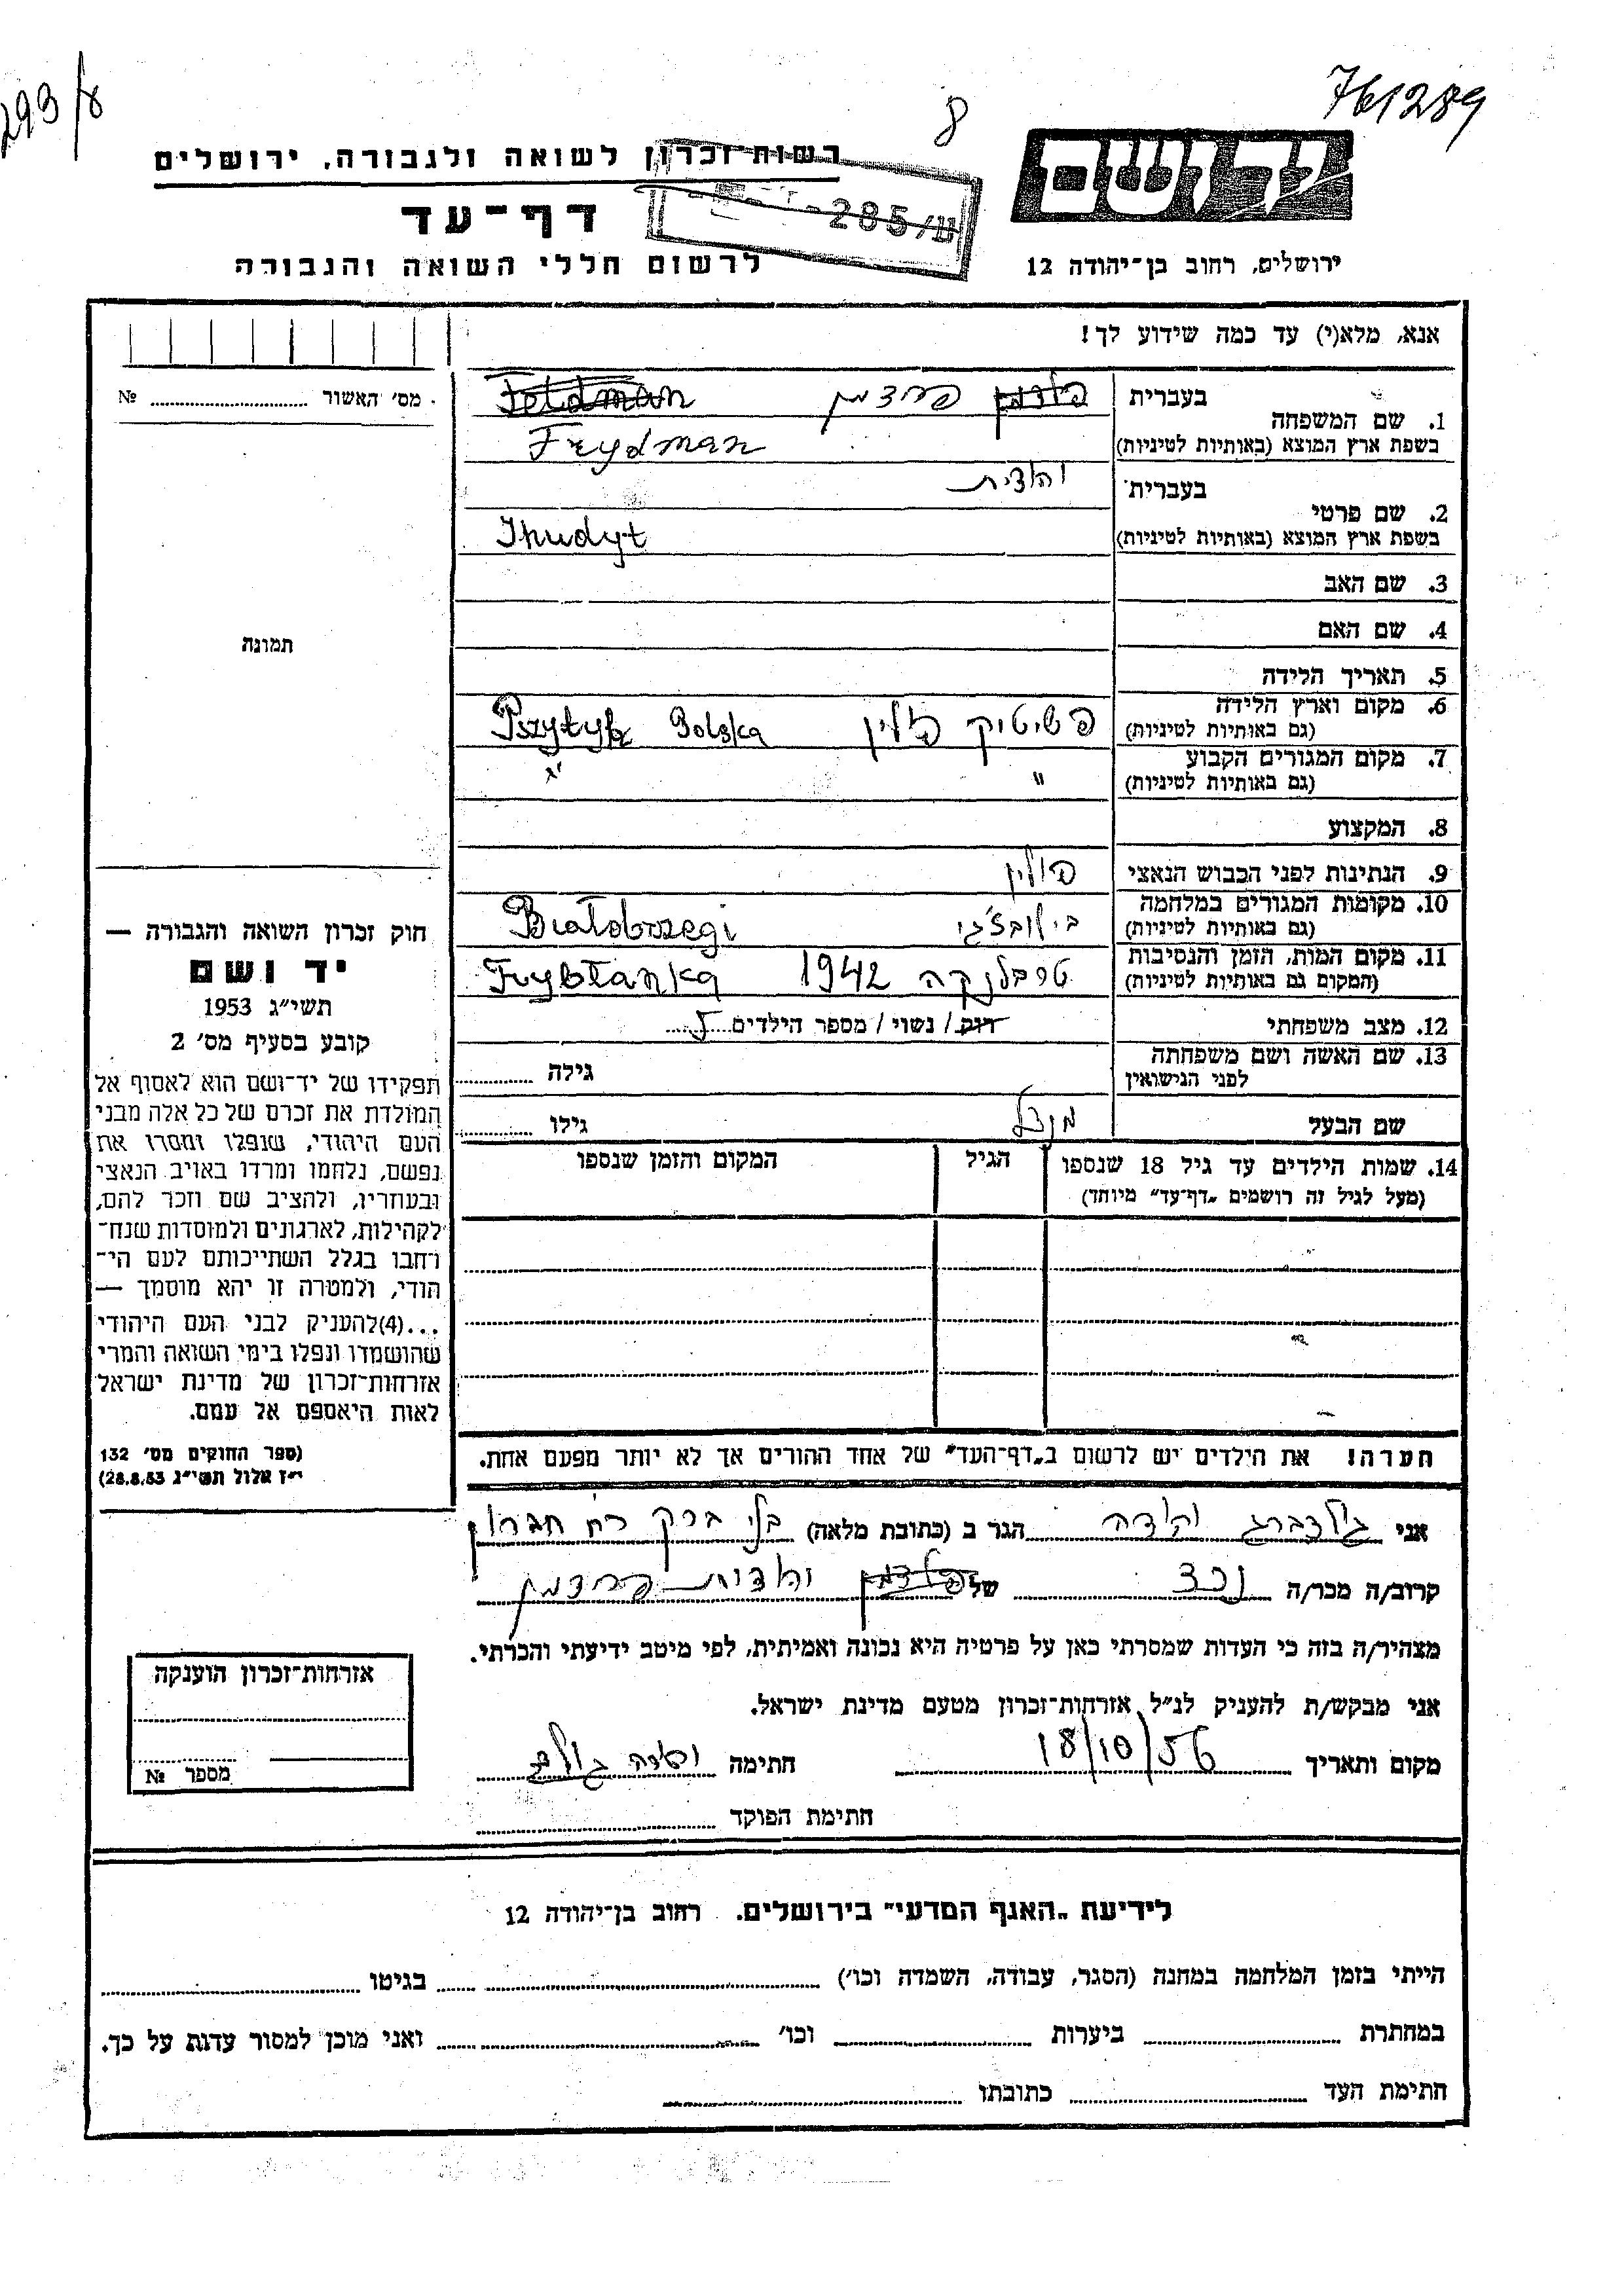 293/8
8
761289
רשות־זכרון לשואה ולגבורה, ירושלים
285/ש
דף־עד
לרשום חללי השואה והגבורה
ירושלים, רחוב בן־יהודה 12
אנא, מלא(י) עד כמה שידוע לך!
מס׳ האשור № 
1. שם המשפחה
בעברית פלדמן פרידמן Feldman
בשפת ארץ המוצא (באותיות לטיניות) Frydman
2. שם פרטי
בעברית יהודית
בשפת ארץ המוצא (באותיות לטיניות) Ihudyt
3. שם האב
4. שם האם
5. תאריך הלידה
6. מקום וארץ הלידה
(גם באותיות לטיניות) פשיטיק פולין Pszytyk Polska
7. מקום המגורים הקבוע
(גם באותיות לטיניות) "
8. המקצוע
9. הנתינות לפני הכבוש הנאצי פולין
10. מקומות המגורים במלחמה
(גם באותיות לטיניות) Białobrzegi
11. מקום המות, הזמן והנסיבות
(המקום גם באותיות לטיניות) טרבלנקה 1942 Tryblanka
12. מצב משפחתי רוק / נשוי / מספר הילדים 5
13. שם האשה ושם משפחתה
לפני הנישואין גילה
שם הבעל גילו
14. שמות הילדים עד גיל 18 שנספו הגיל המקום והזמן שנספו
(מעל לגיל זה רושמים „דף־עד״ מיוחד)
הערה! את הילדים יש לרשום ב„דף־העד״ של אחד ההורים אך לא יותר מפעם אחת.
תמונה
חוק זכרון השואה והגבורה —
יד ושם
תשי״ג 1953
קובע בסעיף מס׳ 2
תפקידו של יד־ושם הוא לאסוף אל
המולדת את זכרם של כל אלה מבני
העם היהודי, שנפלו ומסרו את
נפשם, נלחמו ומרדו באויב הנאצי
ובעוזריו, ולהציב שם וזכר להם,
לקהילות, לארגונים ולמוסדות שנח־
רבו בגלל השתייכותם לעם הי־
הודי, ולמטרה זו יהא מוסמך —
...(4) להעניק לבני העם היהודי
שהושמדו ונפלו בימי השואה והמרי
אזרחות־זכרון של מדינת ישראל
לאות היאספם אל עמם.
(ספר החוקים מס׳ 132
י״ז אלול תשי״ג 28.8.53)
אני גולדברג יהודה הגר ב (כתובת מלאה) בני ברק רח חברון
קרוב/ה מכר/ה נכד של פלדמן יהודית פרידמן
מצהיר/ה בזה כי העדות שמסרתי כאן על פרטיה היא נכונה ואמיתית, לפי מיטב ידיעתי והכרתי.
אני מבקש/ת להעניק לנ״ל אזרחות־זכרון מטעם מדינת ישראל.
מקום ותאריך 18/10/56 חתימה
חתימת הפוקד
אזרחות־זכרון הוענקה
מספר №
לידיעת „האגף המדעי״ בירושלים. רחוב בן־יהודה 12
הייתי בזמן המלחמה במחנה (הסגר, עבודה, השמדה וכו׳) בגיטו
במחתרת ביערות וכו׳ ואני מוכן למסור עדות על כך.
חתימת העד כתובתו